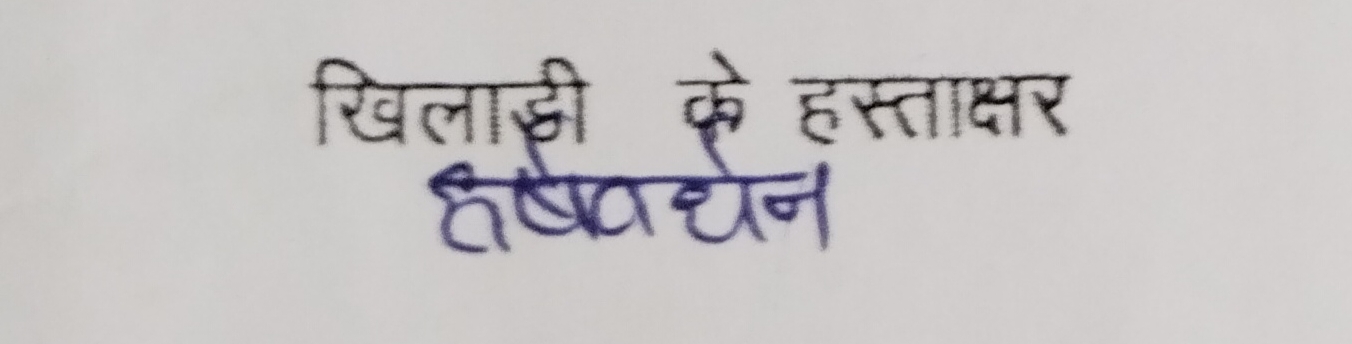 खिलाडी के हस्ताक्षर
हर्षवर्धन